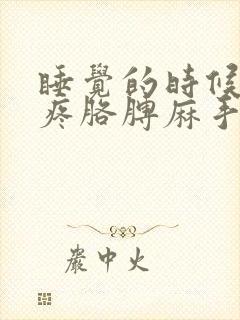 睡覺的時候
疼胳膊麻手
嚴中火